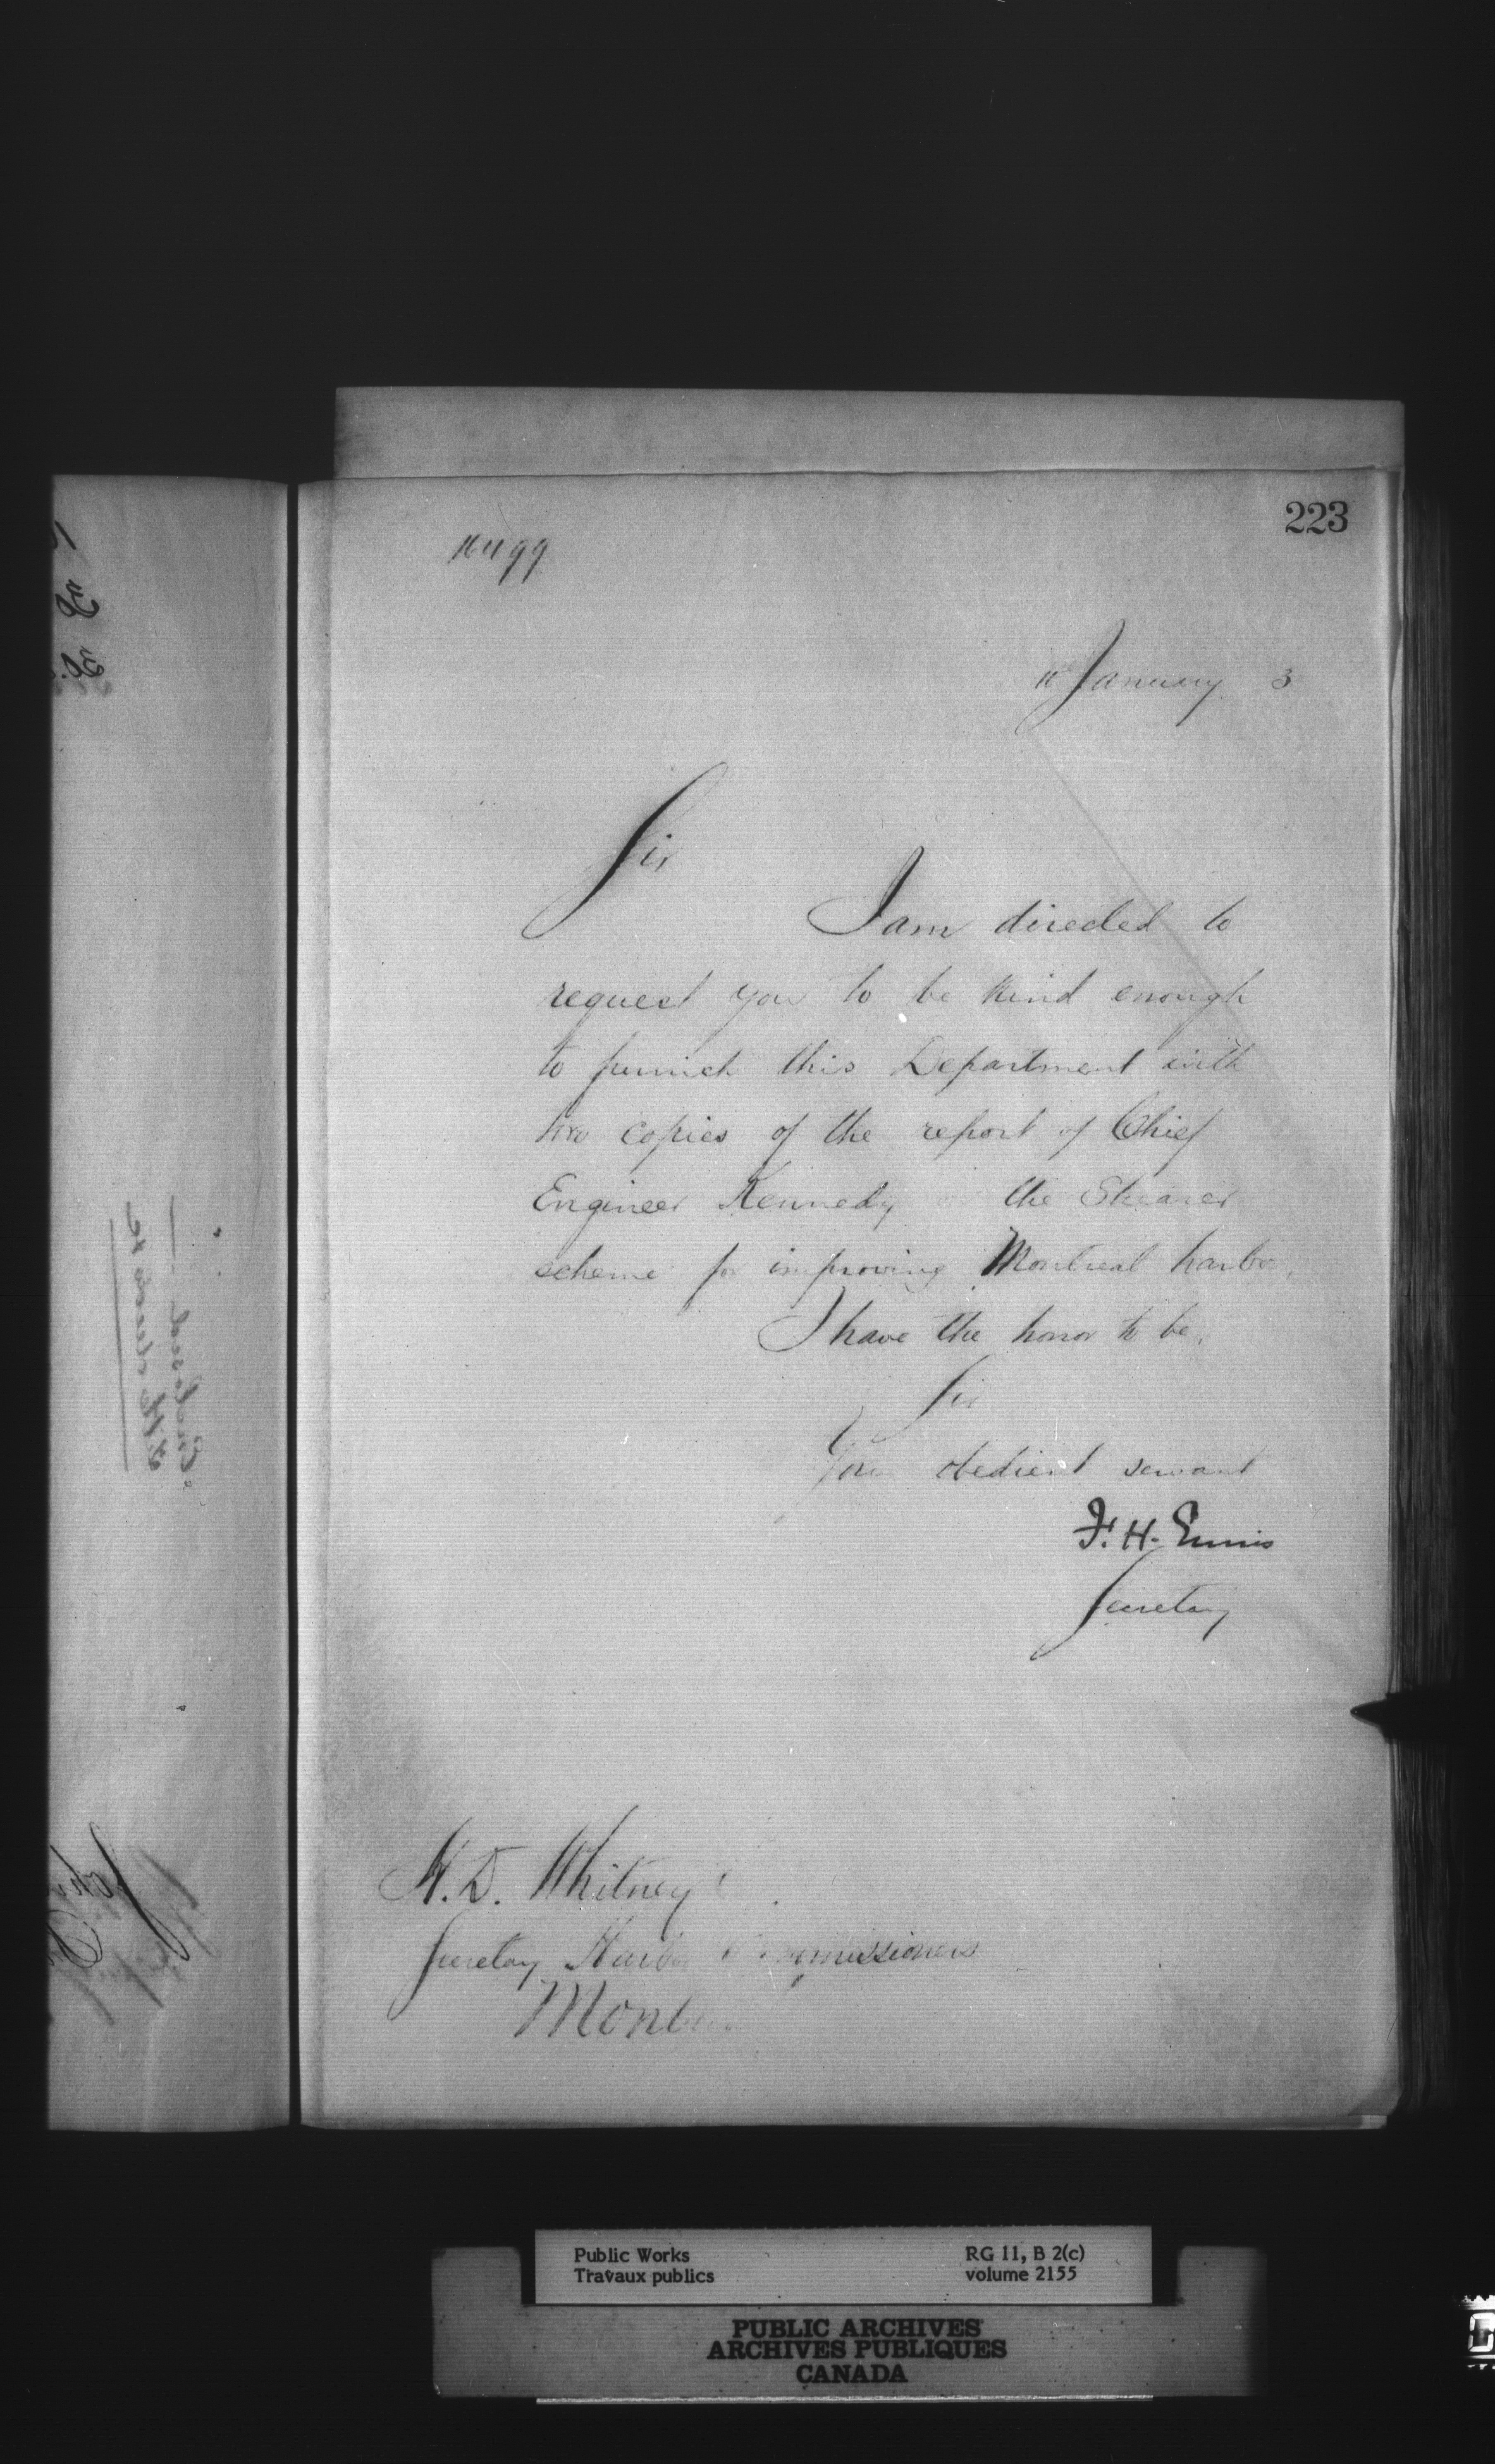 223
11th January 3
Sir
I am directed to
request you to be kind enough
to furnish this Department with
two copies of the report of Chief
Engineer Kennedy on the Shearer
scheme for improving Montreal harbor,
I have the honor to be,
Sir
Your obedient servant
F. H. Ennis
Secretary
H. D. Whitney
Secretary Harbor Commissioners
Montreal
Public Works
Travaux publics
RG 11, B 2(c)
volume 2155
PUBLIC ARCHIVES
ARCHIVES PUBLIQUES
CANADA